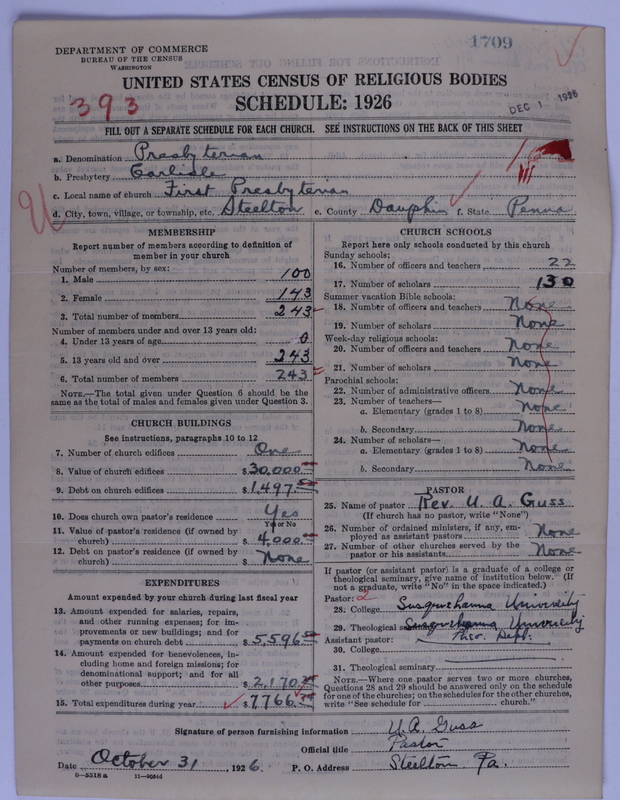 1709
DEPARTMENT OF COMMERCE
BUREAU OF THE CENSUS
WASHINGTON
UNITED STATES CENSUS OF RELIGIOUS BODIES
393
SCHEDULE: 1926
DEC 1 1926
FILL OUT A SEPARATE SCHEDULE FOR EACH CHURCH. SEE INSTRUCTIONS ON THE BACK OF THIS SHEET
a. Denomination Presbyterian
b. Presbytery Carlisle
c. Local name of church First Presbyterian
d. City, town, village, or township, etc. Steelton e. County Dauphin f. State Penna
MEMBERSHIP
Report number of members according to definition of
member in your church
Number of members, by sex:
1. Male 100
2. Female 143
3. Total number of members 243
Number of members under and over 13 years old:
4. Under 13 years of age 0
5. 13 years old and over 243
6. Total number of members 243
NOTE.—The total given under Question 6 should be the
same as the total of males and females given under Question 3.
CHURCH BUILDINGS
See instructions, paragraphs 10 to 12
7. Number of church edifices One
8. Value of church edifices $30,000
9. Debt on church edifices $1,497
10. Does church own pastor's residence Yes
Yes or No
11. Value of pastor's residence (if owned by
church) $4,000
12. Debt on pastor's residence (if owned by
church) $None
EXPENDITURES
Amount expended by your church during last fiscal year
13. Amount expended for salaries, repairs,
and other running expenses; for im-
provements or new buildings; and for
payments on church debt $5,596
14. Amount expended for benevolences, in-
cluding home and foreign missions; for
denominational support; and for all
other purposes $2,170
15. Total expenditures during year $7766
CHURCH SCHOOLS
Report here only schools conducted by this church
Sunday schools:
16. Number of officers and teachers 22
17. Number of scholars 130
Summer vacation Bible schools:
18. Number of officers and teachers None
19. Number of scholars None
Week-day religious schools:
20. Number of officers and teachers None
21. Number of scholars None
Parochial schools:
22. Number of administrative officers None
23. Number of teachers—
a. Elementary (grades 1 to 8) None
b. Secondary None
24. Number of scholars—
a. Elementary (grades 1 to 8) None
b. Secondary None
PASTOR
25. Name of pastor Rev. U. A. Guss
(If church has no pastor, write "None")
26. Number of ordained ministers, if any, em-
ployed as assistant pastors None
27. Number of other churches served by the
pastor or his assistants None
If pastor (or assistant pastor) is a graduate of a college or
theological seminary, give name of institution below. (If
not a graduate, write "No" in the space indicated.)
Pastor: 2
28. College Susquehanna University
29. Theological seminary Susquehanna University
Assistant pastor: Theo. Dept.
30. College
31. Theological seminary
NOTE.—Where one pastor serves two or more churches,
Questions 28 and 29 should be answered only on the schedule
for one of the churches; on the schedules for the other churches,
write "See schedule for church."
Signature of person furnishing information U. A. Guss
Official title Pastor
Date October 31, 1926. P. O. Address Steelton, Pa.
8—5518a 11—9034d